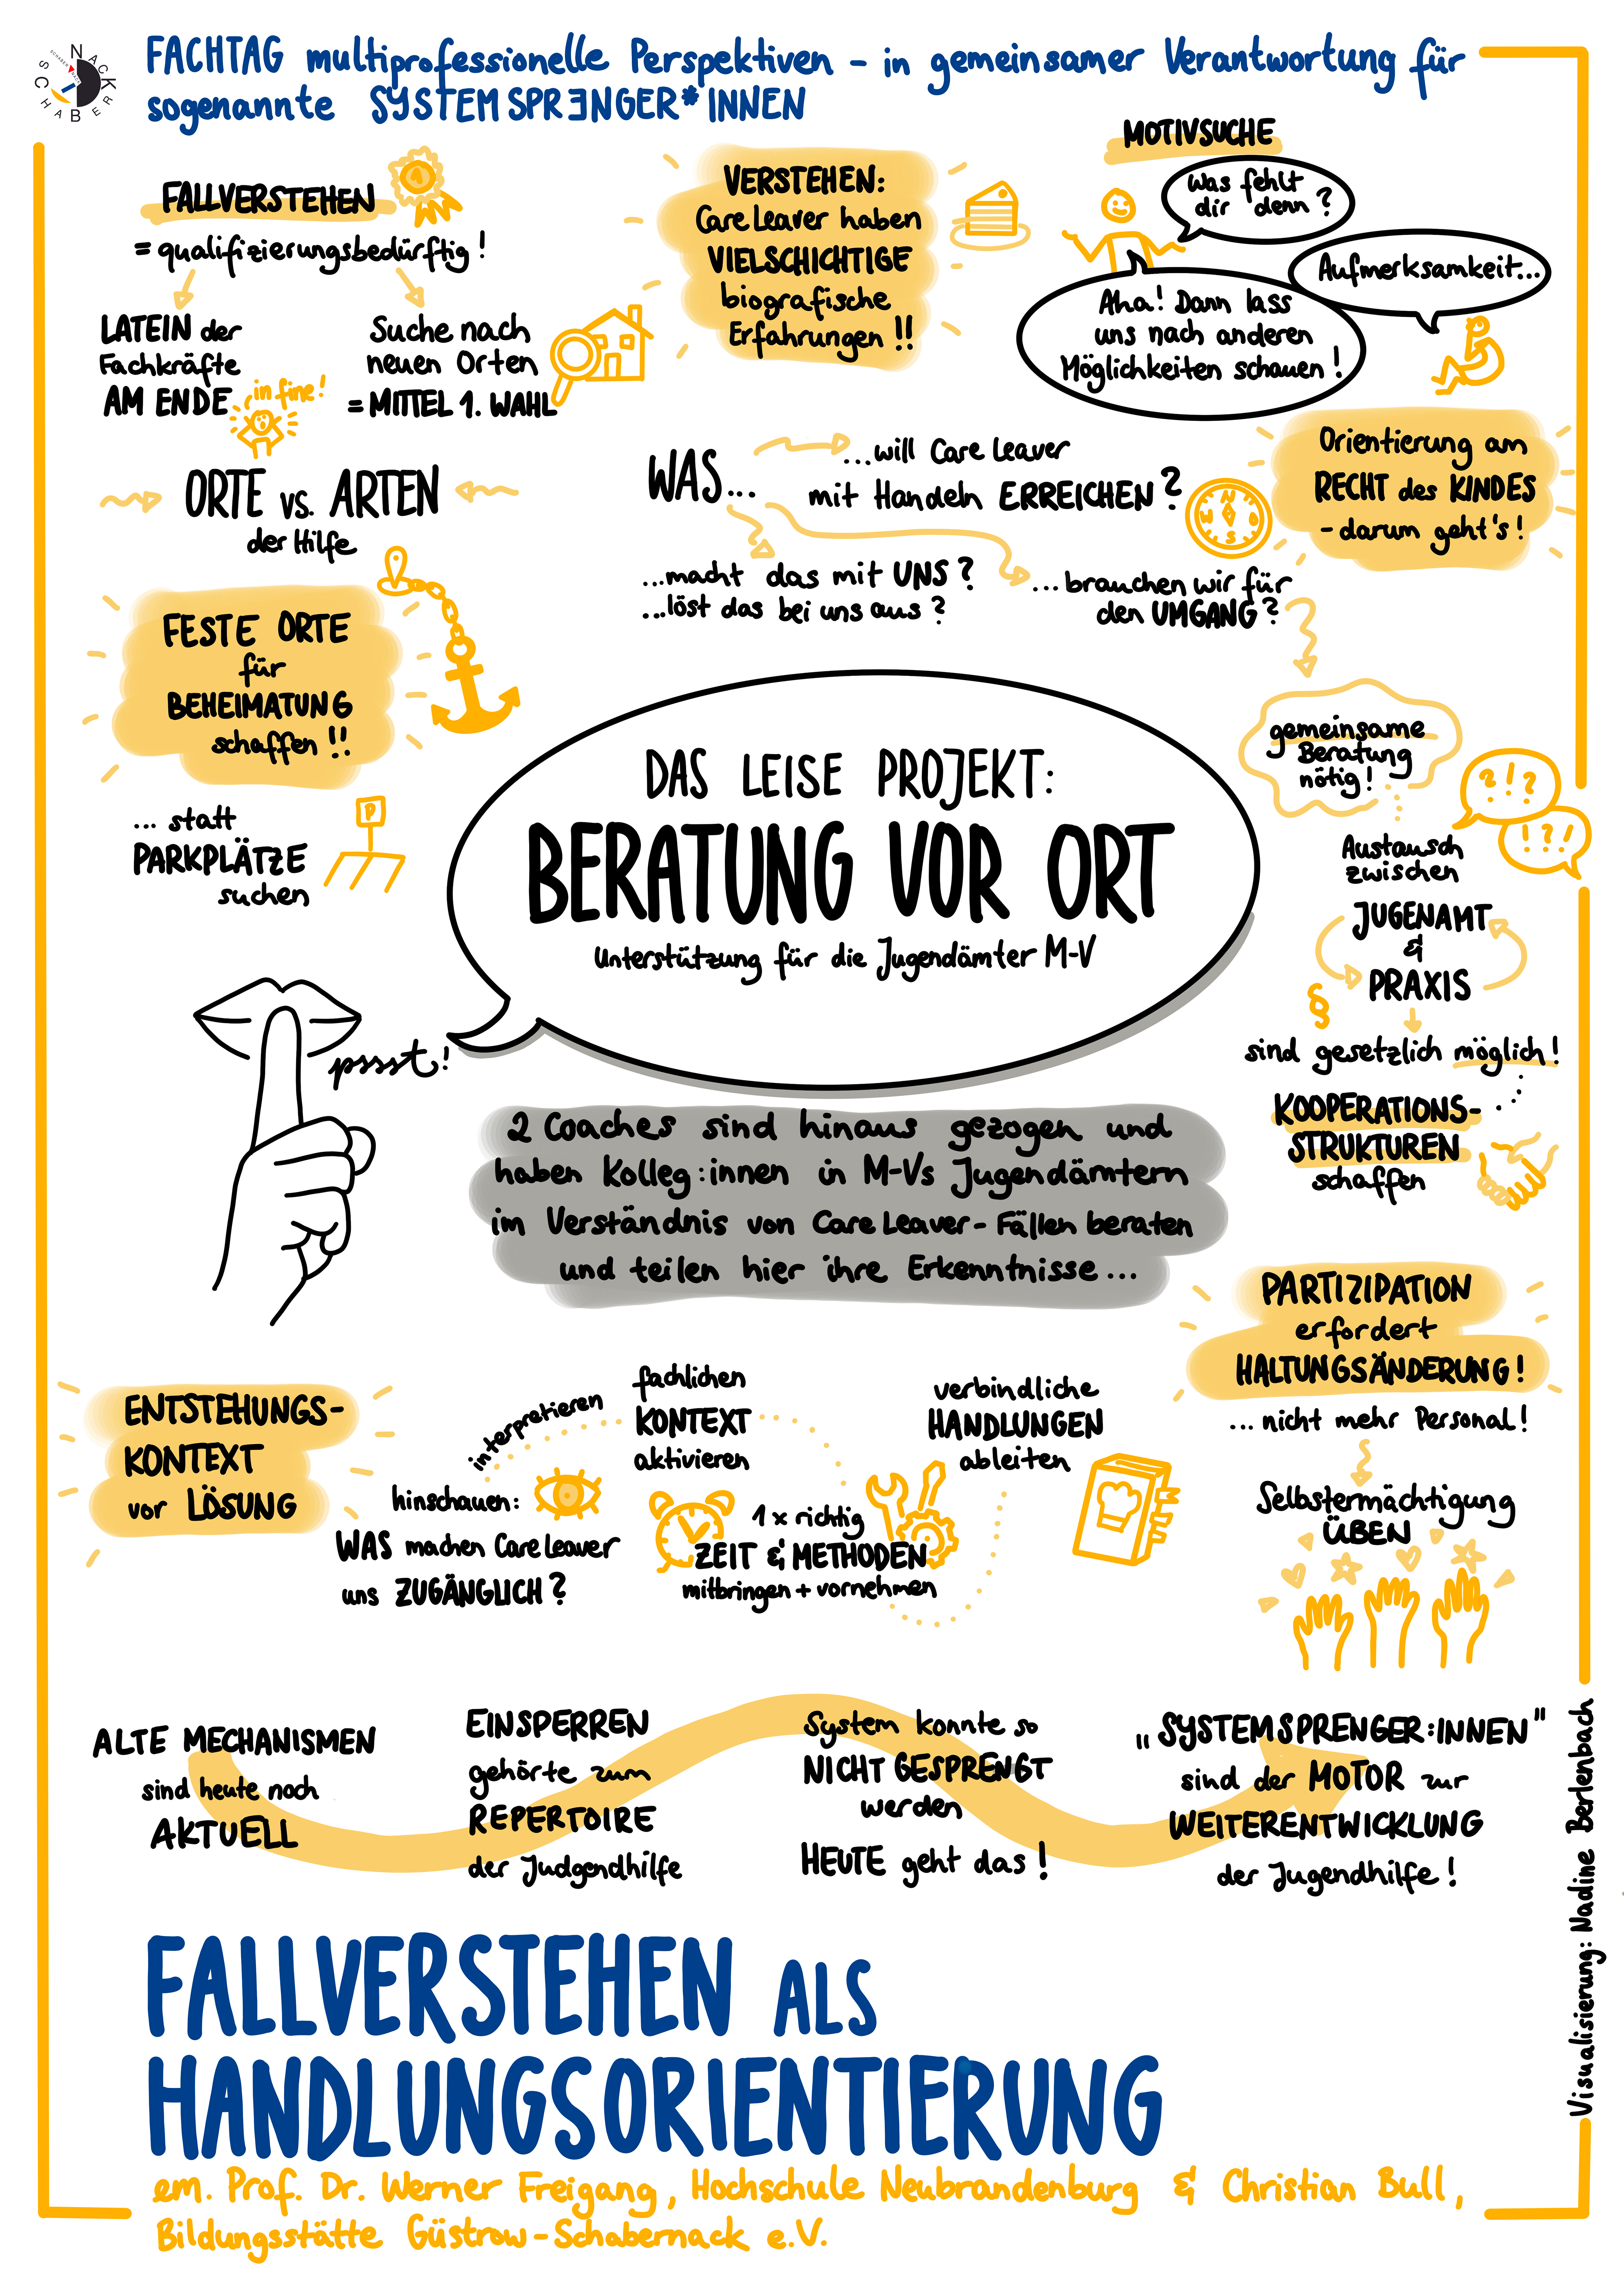 SCHABERNACK
FACHTAG multiprofessionelle Perspektiven – in gemeinsamer Verantwortung für
sogenannte SYSTEMSPRƎNGER*INNEN
FALLVERSTEHEN
1
= qualifizierungsbedürftig!
LATEIN der
Fachkräfte
AM ENDE
in fine!
Suche nach
neuen Orten
= MITTEL 1. WAHL
VERSTEHEN:
Care Leaver haben
VIELSCHICHTIGE
biografische
Erfahrungen !!
MOTIVSUCHE
Was fehlt
dir denn?
Aufmerksamkeit...
Aha! Dann lass
uns nach anderen
Möglichkeiten schauen!
ORTE vs. ARTEN
der Hilfe
WAS...
...will Care Leaver
mit Handeln ERREICHEN?
...macht das mit UNS?
...löst das bei uns aus?
...brauchen wir für
den UMGANG?
N
W O
S
Orientierung am
RECHT des KINDES
- darum geht's!
FESTE ORTE
für
BEHEIMATUNG
schaffen!!
... statt
PARKPLÄTZE
suchen
P
DAS LEISE PROJEKT:
BERATUNG VOR ORT
Unterstützung für die Jugendämter M-V
pssst!
gemeinsame
Beratung
nötig!
?!?
!?!
Austausch
zwischen
JUGENAMT
&
PRAXIS
§
sind gesetzlich möglich!
KOOPERATIONS-
STRUKTUREN
schaffen
2 Coaches sind hinaus gezogen und
haben Kolleg:innen in M-Vs Jugendämtern
im Verständnis von Care Leaver-Fällen beraten
und teilen hier ihre Erkenntnisse...
PARTIZIPATION
erfordert
HALTUNGSÄNDERUNG!
... nicht mehr Personal!
Selbstermächtigung
ÜBEN
ENTSTEHUNGS-
KONTEXT
vor LÖSUNG
hinschauen:
WAS machen Care Leaver
uns ZUGÄNGLICH?
interpretieren
fachlichen
KONTEXT
aktivieren
1 x richtig
ZEIT & METHODEN
mitbringen + vornehmen
verbindliche
HANDLUNGEN
ableiten
ALTE MECHANISMEN
sind heute noch
AKTUELL
EINSPERREN
gehörte zum
REPERTOIRE
der Judgendhilfe
System konnte so
NICHT GESPRENGT
werden
HEUTE geht das!
„SYSTEMSPRENGER:INNEN"
sind der MOTOR zur
WEITERENTWICKLUNG
der Jugendhilfe!
Visualisierung: Nadine Berlenbach
FALLVERSTEHEN ALS
HANDLUNGSORIENTIERUNG
em. Prof. Dr. Werner Freigang, Hochschule Neubrandenburg & Christian Bull,
Bildungsstätte Güstrow-Schabernack e.V.